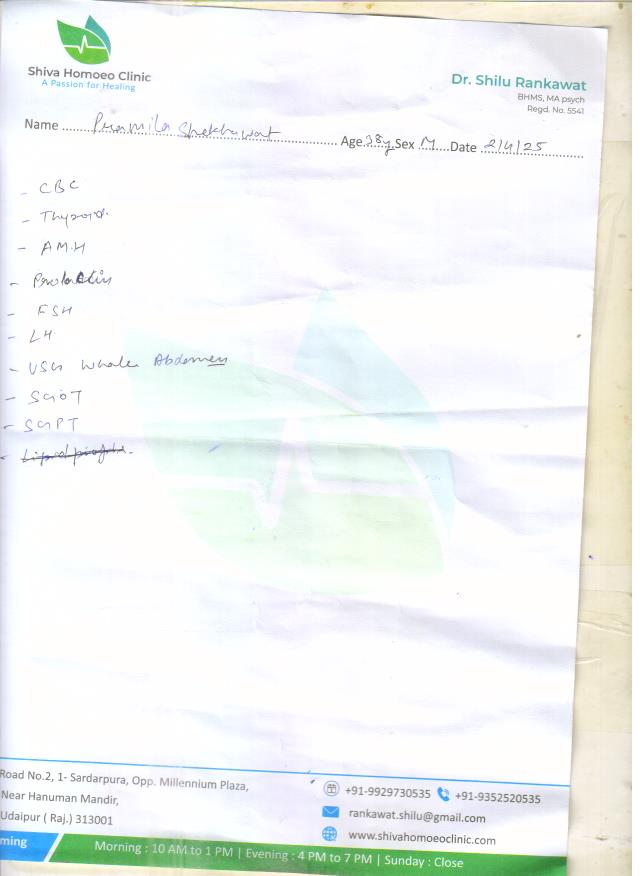 Shiva Homoeo Clinic
A Passion for Healing
Dr. Shilu Rankawat
BHMS, MA psych
Regd. No. 5541
Name Pramila Shekhawat Age 38y Sex M Date 2/4/25
- CBC
- Thyroid.
- AMH
- Prolactin
- FSH
- LH
- USG Whole Abdomen
- SGOT
- SGPT
- Lipid profile.
Road No.2, 1- Sardarpura, Opp. Millennium Plaza,
Near Hanuman Mandir,
Udaipur ( Raj.) 313001
+91-9929730535 +91-9352520535
rankawat.shilu@gmail.com
www.shivahomoeoclinic.com
ming
Morning : 10 AM to 1 PM | Evening : 4 PM to 7 PM | Sunday : Close